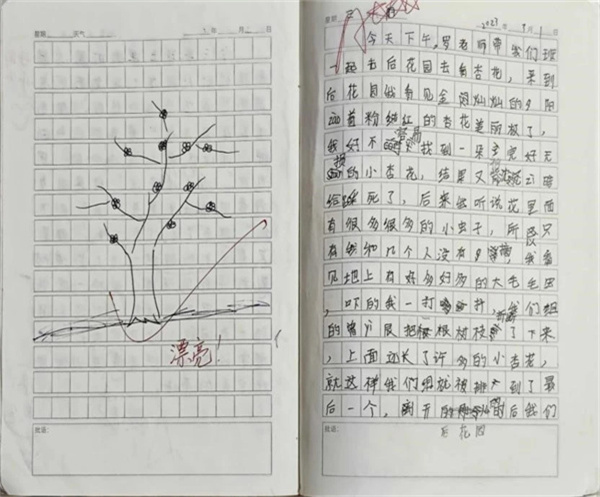 星期 天气 年 月 日
漂亮!
批语:
星期
2023年 月 1
今天下午,罗老师带我们班
一起去后花园去看杏花,来到
后花园我看见金灿灿的夕阳
粉红的杏花美丽极了,
我好不容易找到一朵完好无
损的小杏花,结果又
给 死了,后来 听说花里面
有很多很多的小虫子,所以只
有 几个人没有 ,我看
见地上有好多好多的大毛毛虫
,吓的我一打 ,我们组
的曾 辰把 根树枝 了下来
,上面还长了许多的小杏花,
就这样我们组就被排 到了最
后一个,离开 时后我们
后花园
批语: